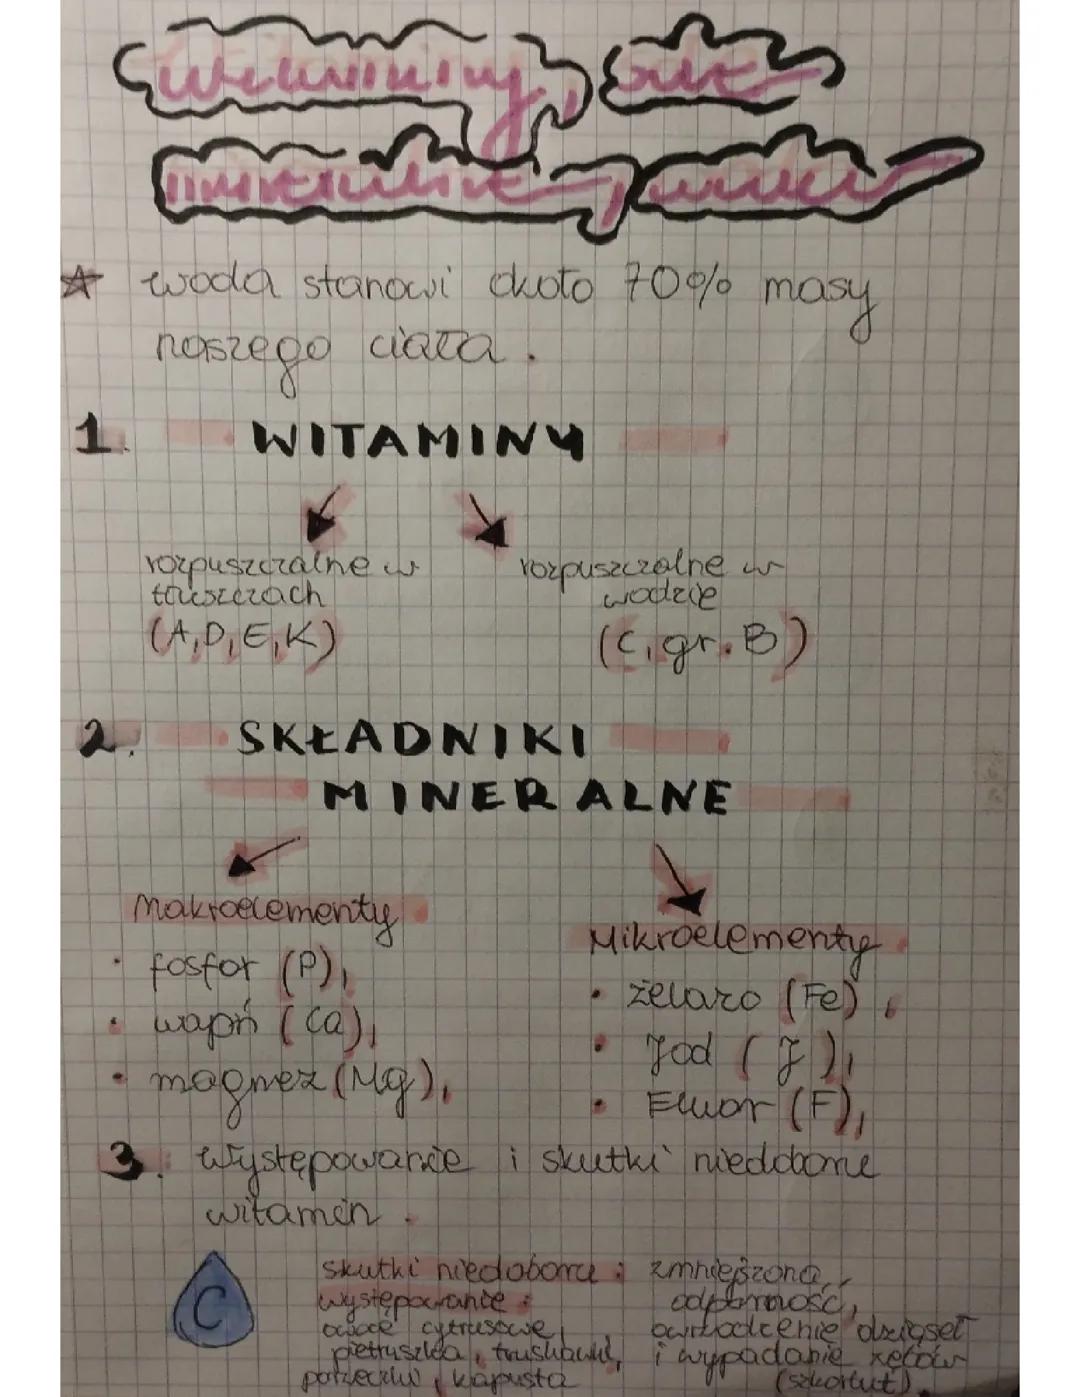 Witaminy, sole
mineralne, woda
☆ woda stanowi około 70% masy
naszego ciała.
1. WITAMINY
rozpuszczalne w tłuszczach (A, D, E, K)
rozpuszczalne w wodzie (C, gr. B)
2. SKŁADNIKI
MINERALNE
Makroelementy
• fosfor (P),
• wapń (Ca),
• magnez (Mg),
Mikroelementy
• żelazo (Fe),
• Jod (J),
• Fluor (F),
3. Występowanie i skutki niedoboru
witamin.
C
występowanie:
owoce cytrusowe,
pietruszka, truskawki,
porzeczki, kapusta
skutki niedoboru: zmniejszona
odporność,
owrzodzenie dziąseł
i wypadanie zębów
(szkorbut).